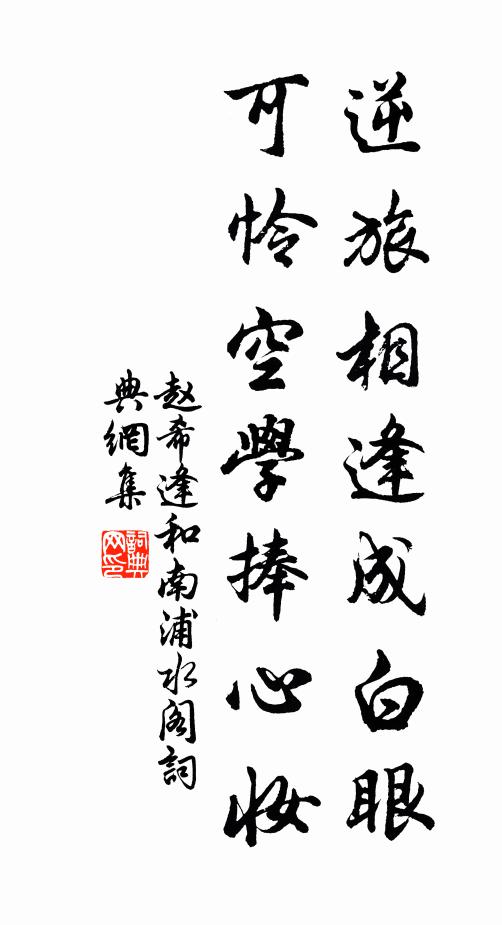 逆旅相逢成白眼
可怜空學捧心妝
赵希逢和南浦水阁詞
典網集
詞典
网印